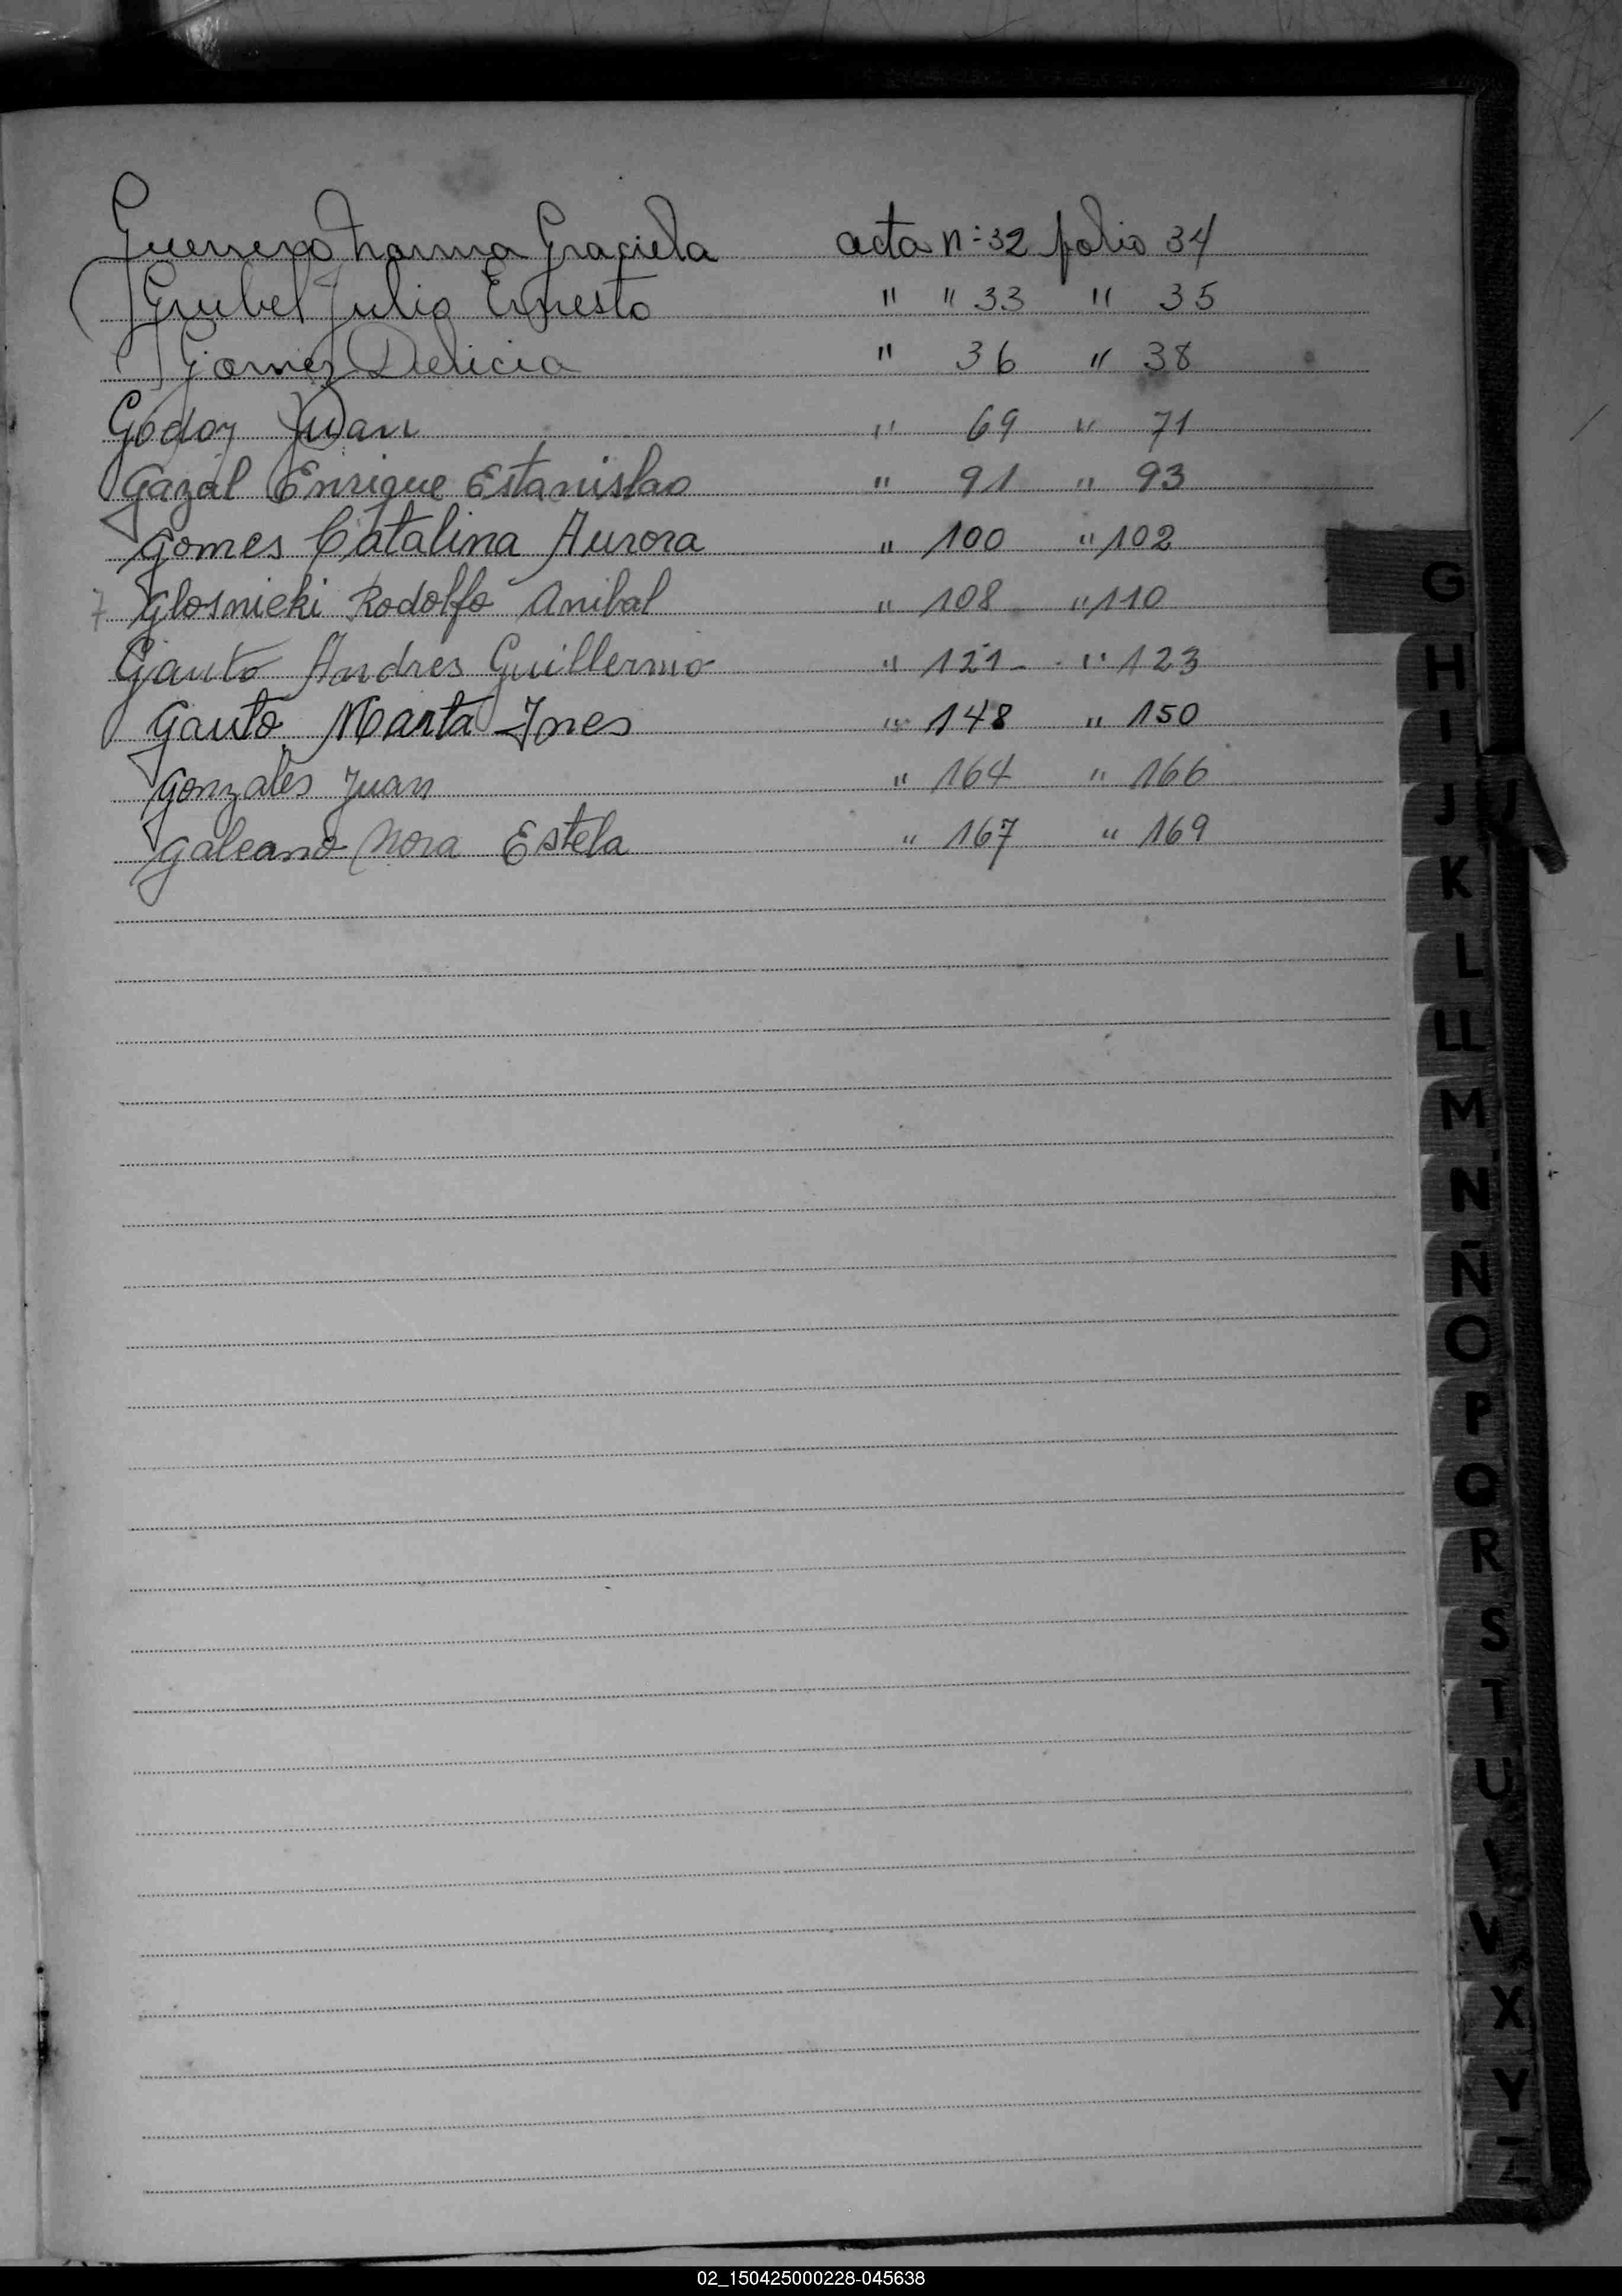 Guerrero Norma Graciela acta nº 32 folio 34
Grubel Julio Ernesto " " 33 " 35
Gomez Delicia " 36 " 38
Godoy Juan " 69 " 71
Gazal Enrique Estanislao " 91 " 93
Gomes Catalina Aurora " 100 " 102
7 Glosnieki Rodolfo Anibal " 108 " 110
Gauto Andres Guillermo " 121 - " 123
Gauto Marta Ines " 148 " 150
Gonzales Juan " 164 " 166
Galeano Nora Estela " 167 " 169
G
H
I
J
K
L
LL
M
N
Ñ
O
P
Q
R
S
T
U
V
X
Y
Z
02_150425000228-045638